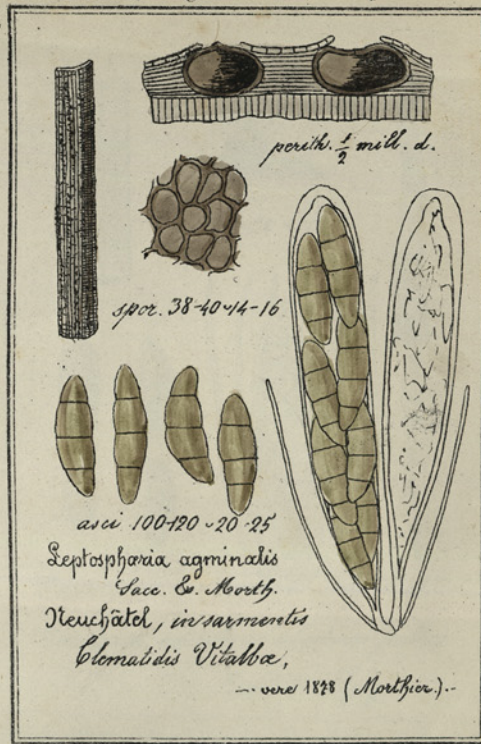 perith. 1/2 mill. d.
spor. 38-40-14-16
asci 100-120-20-25
Leptosphæria agminalis
Sacc. & Morth.
Neuchâtel, in sarmentis
Clematidis Vitalbæ,
vere 1878 (Morthier.).